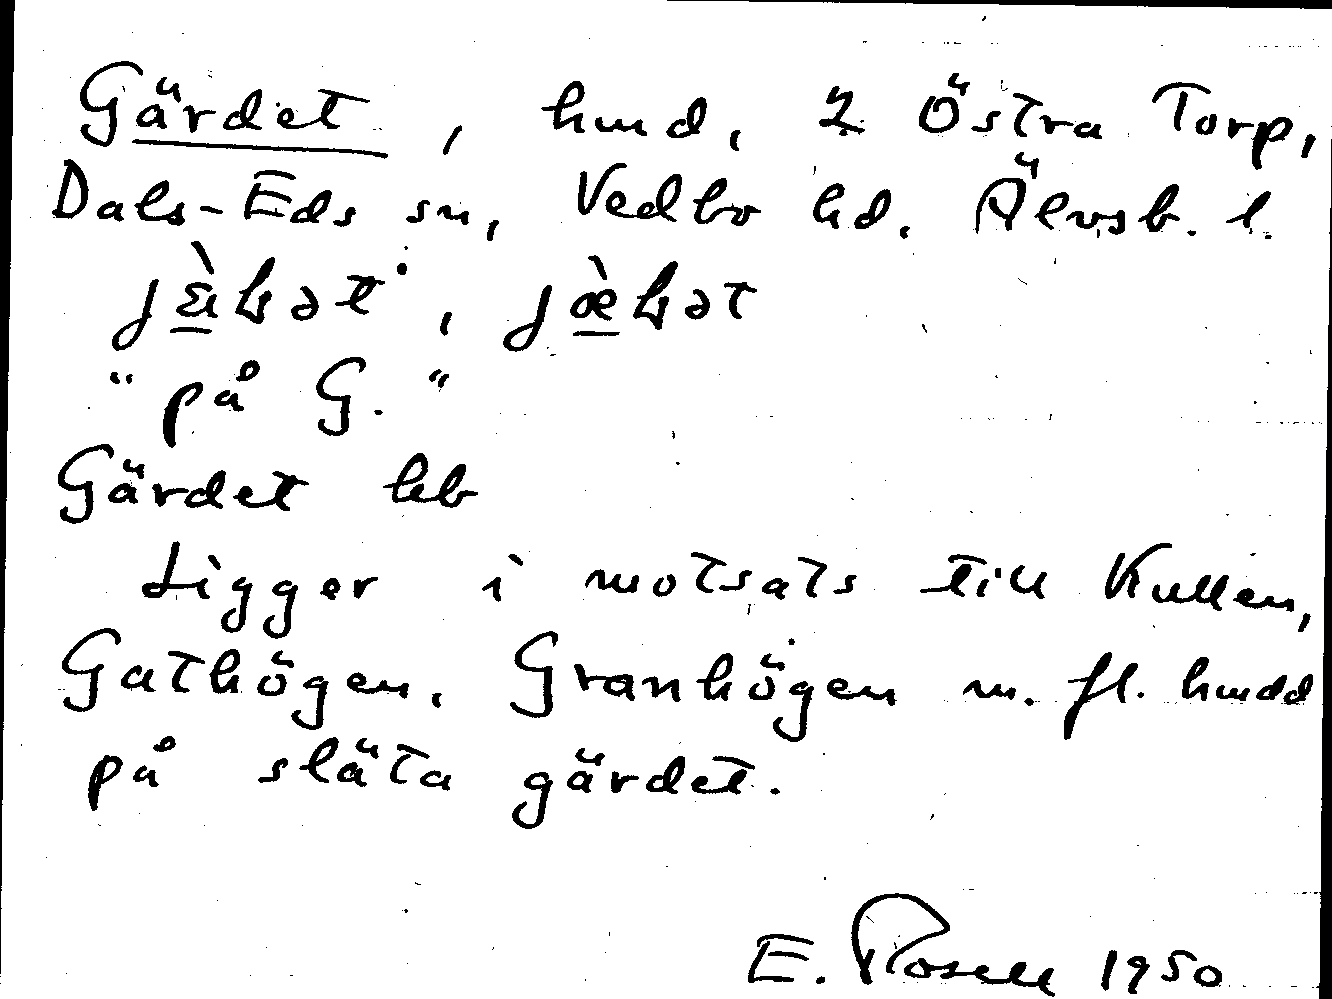 Gärdet, hmd, 2 Östra Torp,
Dals-Eds sn, Vedbo hd. Älvsb. l.
"på G."
Gärdet leb
Ligger i motsats till Kullen,
Gathögen, Granhögen m. fl. hmdd
på släta gärdet.
E. Rosell 1950